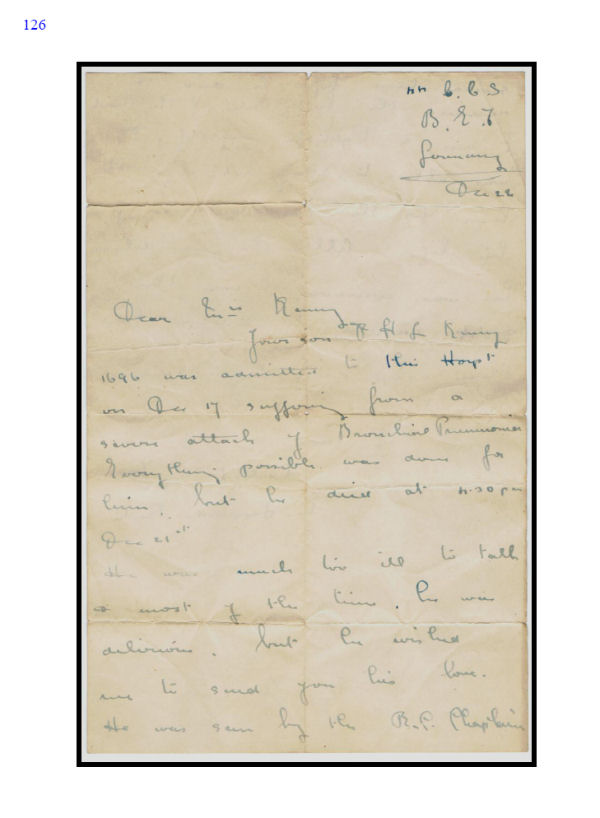 126
44 C.C.S
B.E.F
Germany
Dec 22
Dear Mrs Kenny
Your son H L Kenny
1696 was admitted to this Hospt
on Dec 17 suffering from a
severe attack of Bronchial Pneumonia
Everything possible was done for
him, but he died at 4.30 pm
Dec 21st
He was much too ill to talk
& most of the time, he was
delirious, but he wished
me to send you his love.
He was seen by the R.C. Chaplain